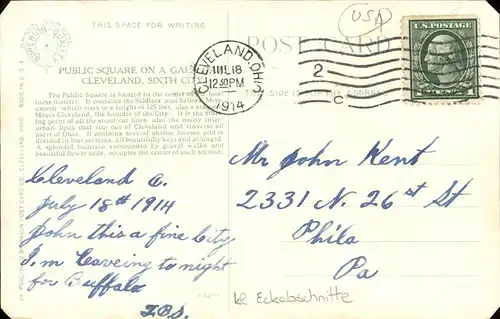 THIS SPACE FOR WRITING
POST CARD
USA
CLEVELAND, OHIO
JUL 18
12-30PM
1914
2
C
U.S. POSTAGE
1
PUBLIC SQUARE ON A
CLEVELAND, SIXTH CITY
The Public Square is located in the center of the
iness district. It contains the Soldiers' and Sailors'
ument which rises to a height of 125 feet, also a
Moses Cleaveland, the founder of the City. It is the
ing point of all the street car lines, also the many
urban lines that run out of Cleveland and traverse all
parts of Ohio. It contains several shelter houses and is
divided in four sections, all beautifully kept and arranged.
A splendid fountain surrounded by gravel walks and
beautiful flower beds, occupies the center of each section.
MADE IN U.S.A.
Cleveland O.
July 18th 1914
John this a fine City
I.m Leaveing to night
for Buffalo
Mr John Kent
2331 N. 26 st St
Phila
Pa
Eckabschnitte